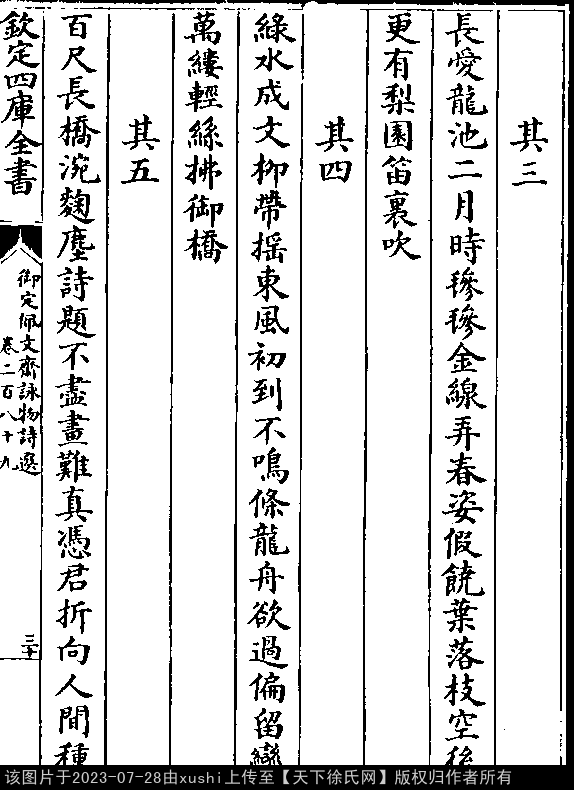 其三
長愛龍池二月時毿毿金線弄春姿假饒葉落枝空後
更有梨園笛裏吹
其四
綠水成文柳帶摇東風初到不鳴條龍舟欲過偏留戀
萬縷輕絲拂御橋
其五
百尺長橋涴麴塵詩題不盡畫難真憑君折向人間種
欽定四庫全書
御定佩文齋詠物詩選
卷二百八十九
三十
该图片于2023-07-28由xushi上传至【天下徐氏网】版权归作者所有